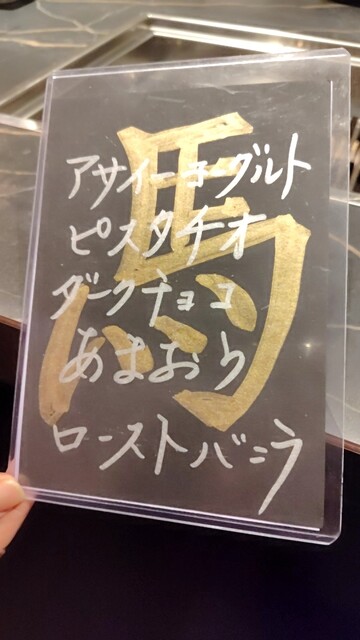 馬
アサイーヨーグルト
ピスタチオ
ダークチョコ
あまおう
ローストバニラ